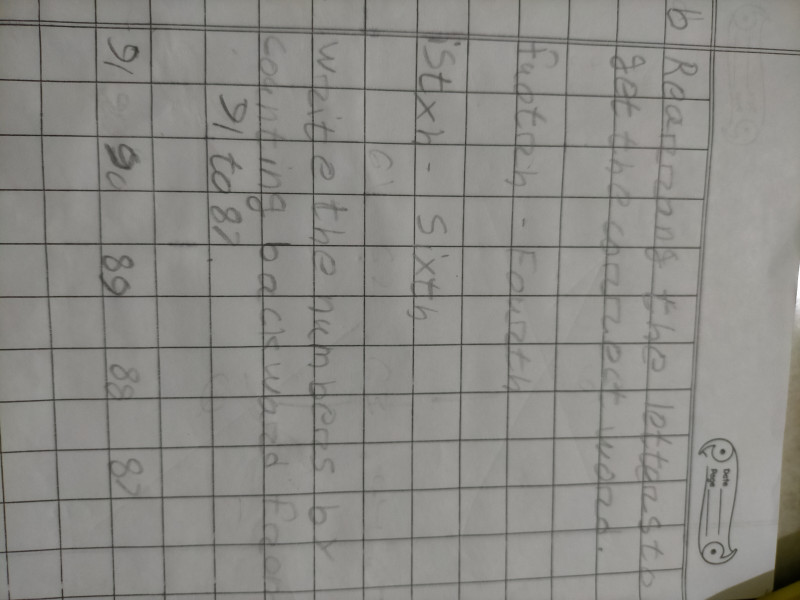 Date
Page
b Rearrang the lotters to
get the correct word.
fuotrh - Fourth
istxh - Sixth
Write the numbers by
counting backward from
91 to 87
91 90 89 88 87